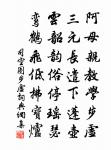 阿母親教學步虛
三元長遣下蓬壺
雲韶韻俗停瑤瑟
鸞鶴飛低拂寶爐
司空圖步虛